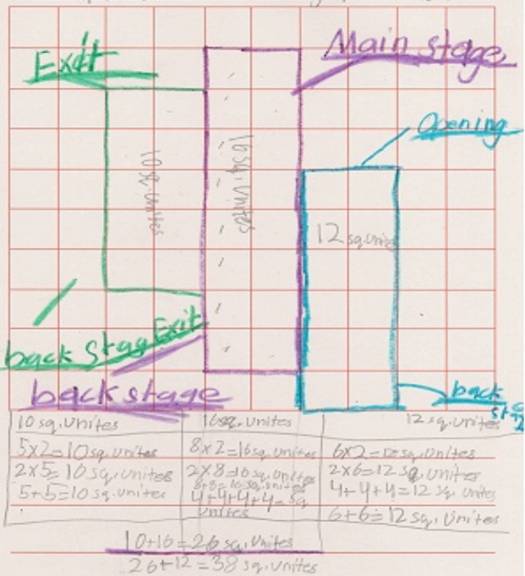 Exit
Main stage
Opening
10 sq. unites
16 sq. unites
12 sq. unites
back stag Exit
backstage
back
10 sq. unites
16 sq. unites
12 sq. unites
5x2=10 sq. unites
8x2=16 sq. unites
6x2=12 sq. unites
2x5=10 sq. unites
2x8=16 sq. unites
2x6=12 sq. unites
5+5=10 sq. unites
8+8=16 sq. unites
4+4+4=12 sq. unites
4+4+4+4= sq
unites
6+6=12 sq. unites
10+16=26 sq. unites
26+12=38 sq. unites